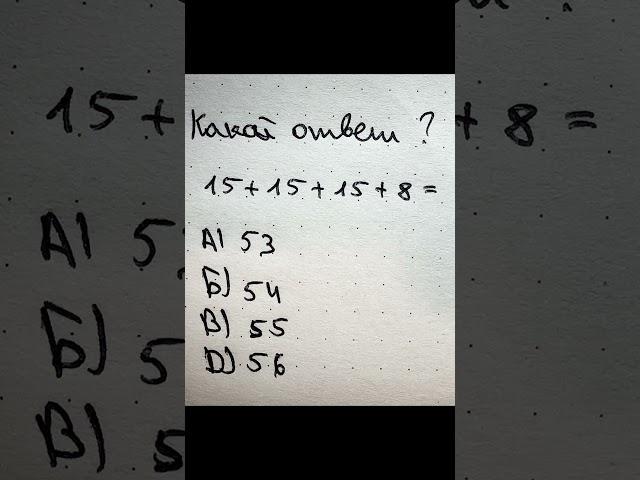 Какой ответ ?
15 + 15 + 15 + 8 =
А) 53
Б) 54
В) 55
D) 56